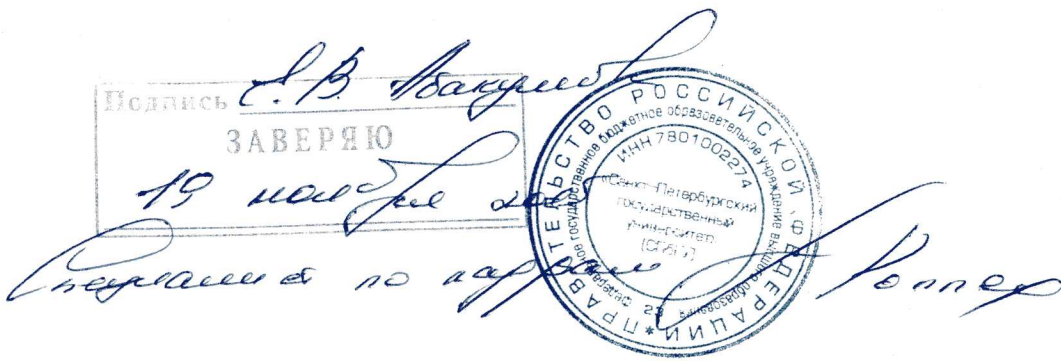 Подпись Е.В. Абакумов
ЗАВЕРЯЮ
19 ноября
Специалист по кадрам
ПРАВИТЕЛЬСТВО РОССИЙСКОЙ ФЕДЕРАЦИИ *
федеральное государственное бюджетное образовательное учреждение высшего образования
ИНН 7801002274
«Санкт-Петербургский
государственный
университет»
(СПбГУ)
23